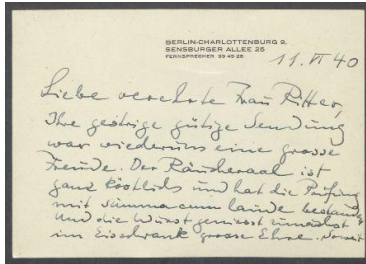 BERLIN-CHARLOTTENBURG 9,
SENSBURGER ALLEE 26
FERNSPRECHER 99 45 28
11. VI 40
Liebe verehrte Frau Ritter,
Ihre gestrige gütige Sendung
war wiederum eine grosse
Freude. Der Räucheraal ist
ganz köstlich und hat die Prüfung
mit summa cum laude bestanden
Und die Wurst geniesst zunächst
im Eisschrank grosse Ehre.